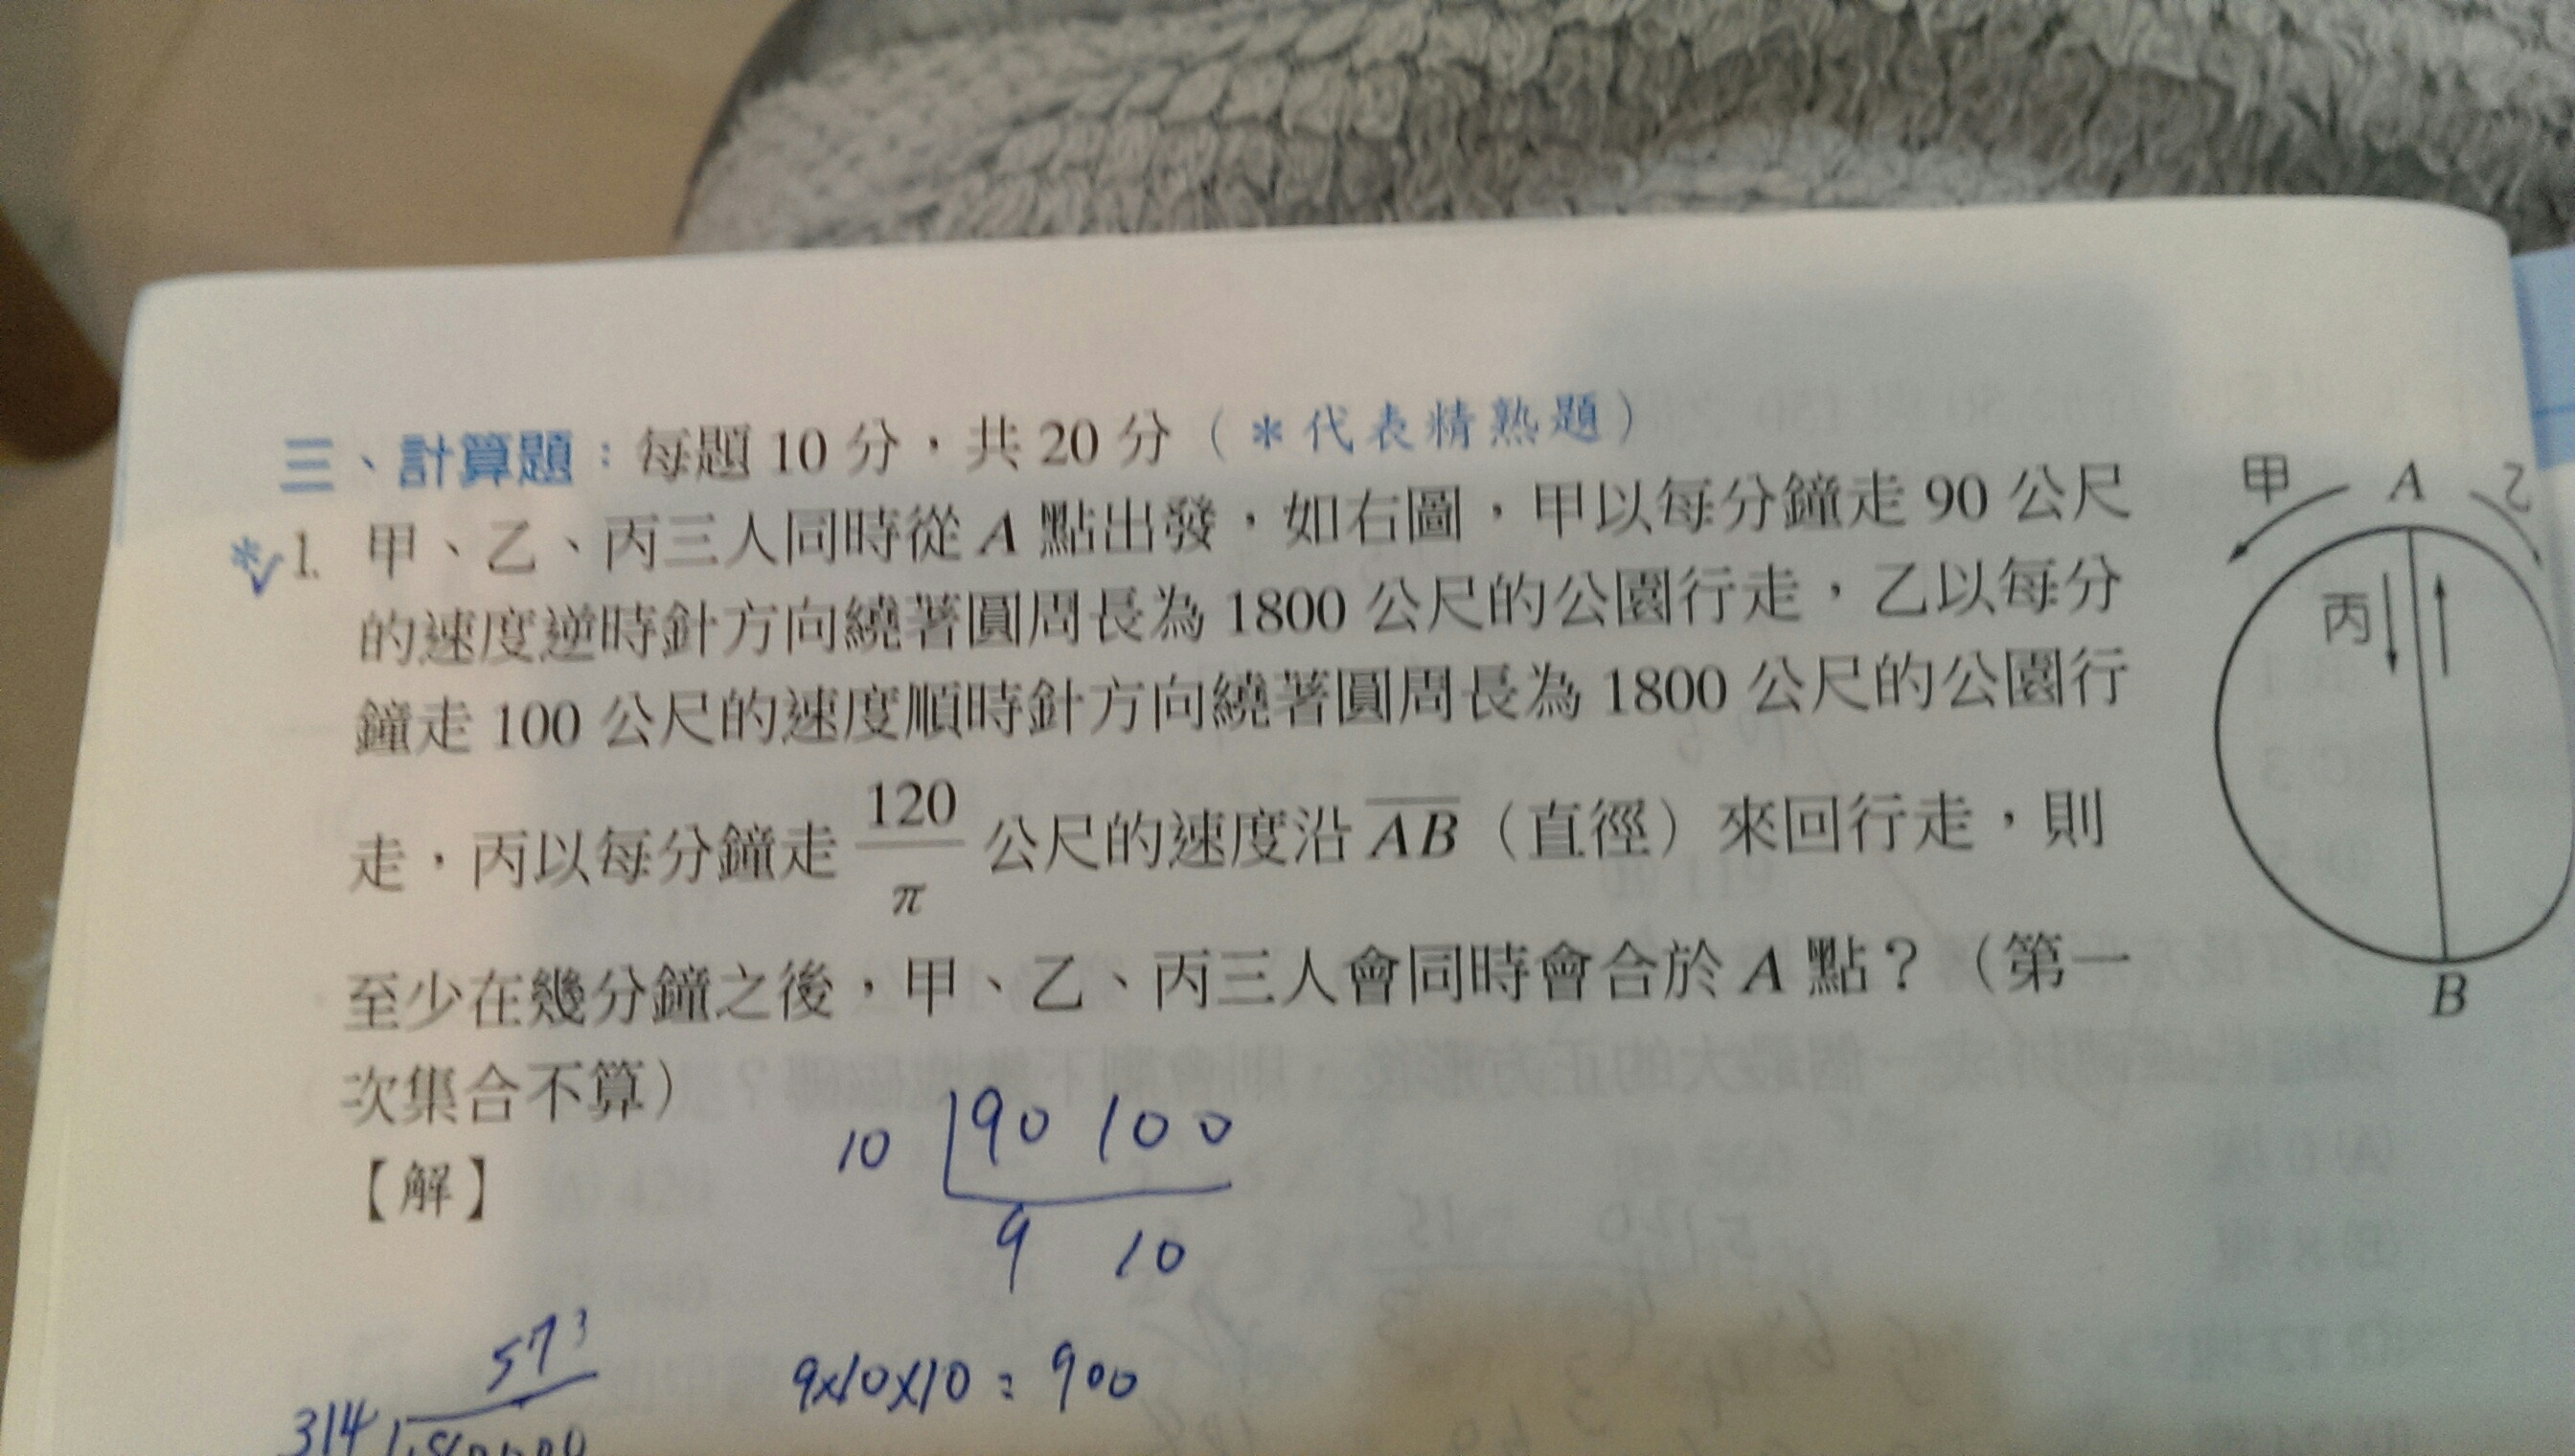 三、計算題：每題 10 分，共 20 分（*代表精熟題）
*✓1. 甲、乙、丙三人同時從 A 點出發，如右圖，甲以每分鐘走 90 公尺
的速度逆時針方向繞著圓周長為 1800 公尺的公園行走，乙以每分
鐘走 100 公尺的速度順時針方向繞著圓周長為 1800 公尺的公園行
走，丙以每分鐘走 120/π 公尺的速度沿 AB（直徑）來回行走，則
至少在幾分鐘之後，甲、乙、丙三人會同時會合於 A 點？（第一
次集合不算）
【解】
甲 A 乙
丙
B
10 90 100
9 10
573
9x10x10 = 900
314